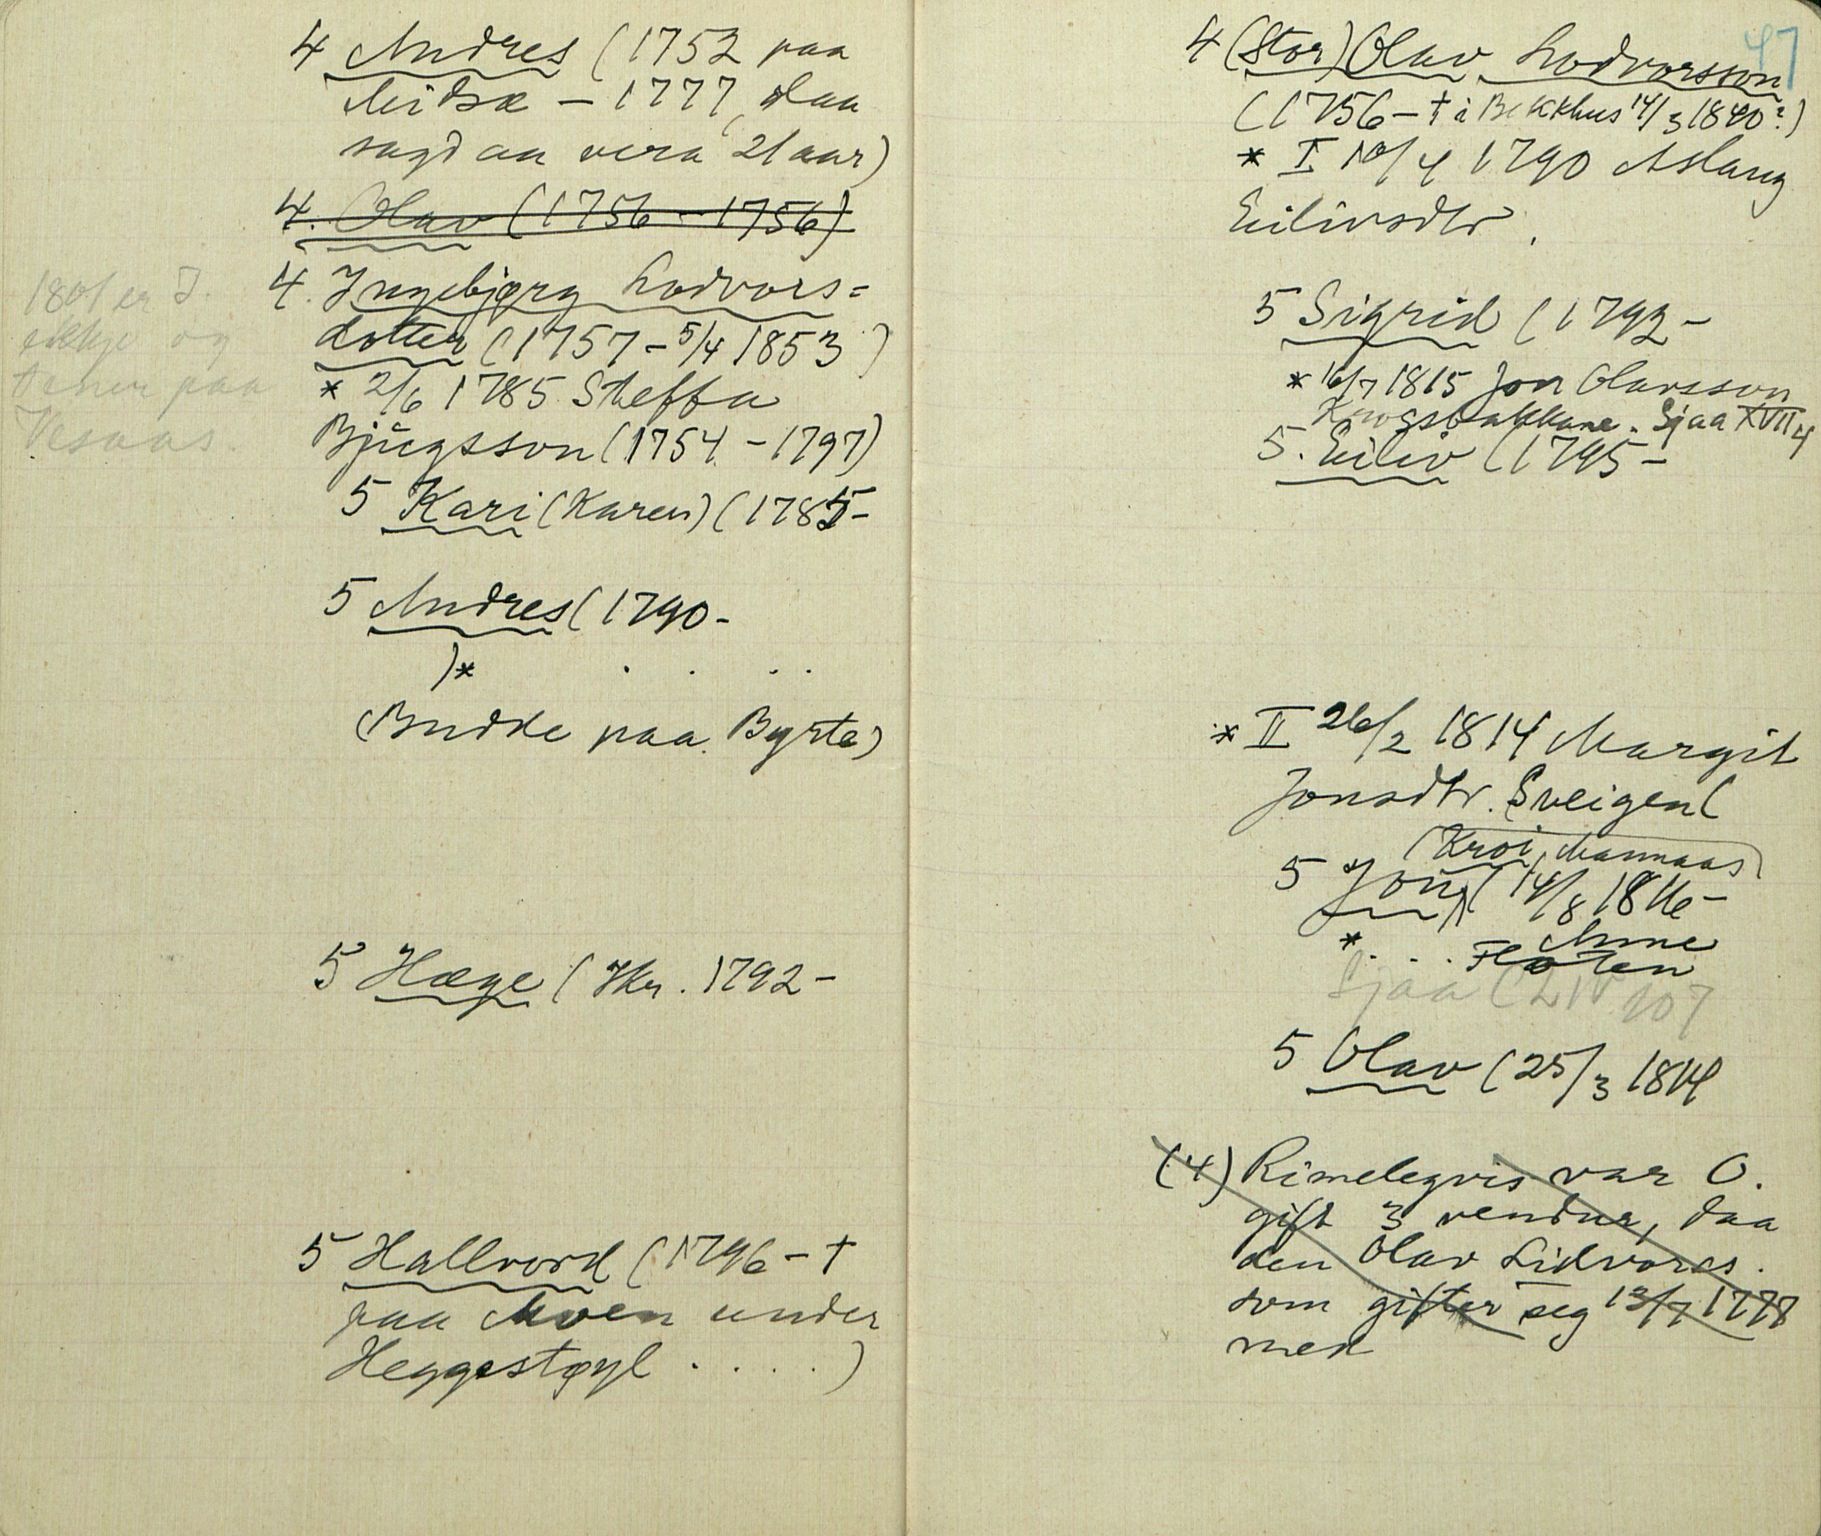 4 Andres (1752 paa
Midbø – 1777, daa
sagd aa vera 21 aar)
4. Olav (1756 – 1756)
4. Ingebjørg Lodvors=
dotter (1757 – 5/4 1853)
* 2/6 1785 Steffa
Bjùgsson (1754 – 1797)
5 Kari (Karen) (1785–
5 Andres (1790–
)* . . . .
(Budde paa Byrte)
5 Hæge (Kr. 1792 –
5 Hallvord (1796 – †
paa Moen under
Heggestøyl . . . . )
1801 er I.
ekkje og
tener paa
Vesaas.
47
4 (Stor) Olav Lodvorsson
(1756 – † i Bekkhus 14/3 1840?)
* I 10/4 1790 Aslaug
Eilivsdtr.
5 Sigrid (1792 –
* 16/7 1815 Jon Olavsson
Krogsbakkane. Sjaa XVII 4
5. Eiliv (1795 –
* II 26/2 1814 Margit
Jonsdtr. Sveigen (
(Kroi, Mannaas)
5 Jon ( 14/8 1816 –
* . . . Anne
Floten
Sjaa (LIV 107
5 Olav (25/3 1814
(4) Rimelegvis var O.
gift 3 vendur, daa
den Olav Lidvords.
som gifter seg 12/7 1778
med